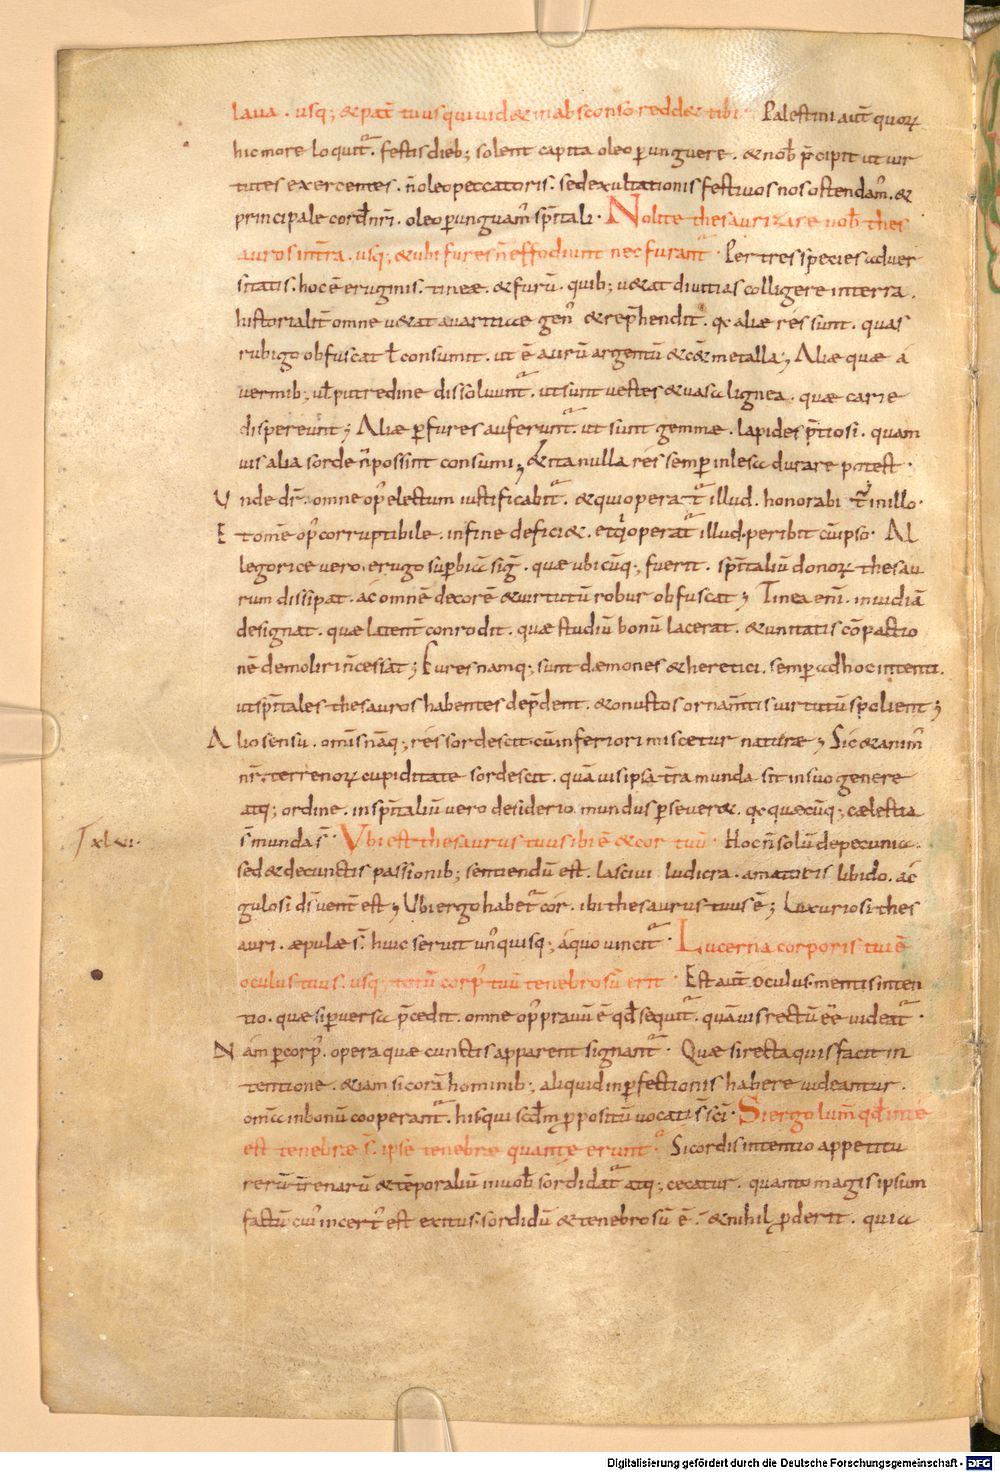 laua . usq; & pat̄ tuus qui uid& in absconso redd& tibi . Palestini aut̄ quoꝝ
hic more loquit᷑ . festis dieb; solent capita oleo ꝑunguere . & nob̄ p̄cipit ut uir
tutes exercentes . n̄ oleo peccatoris . sed exultationis festiuos nos ostendam̄ . &
principale cord̄ nr̄i . oleo ꝑunguam̄ sp̄itali . Nolite thesaurizare uob̄ thes
auros in tr̄a . usq; & ubi fures n̄ effodiunt nec furant᷑ . Per tres species aduer
sitatis . hoc ē eruginis . tineæ . & furū . quib; u&at diuitias colligere in terra .
historialit̄ omne u&at auaritiæ gen᷒ & rep̄hendit . qa aliæ res sunt . quas
rubigo obfuscat ł consumit . ut ē aurū argentū & cǣ metalla; Aliæ quæ a
uermib; uł putredine dissoluunt᷑ . ut sunt uestes & uasa lignea . quæ carie
dispereunt; Aliæ ꝑ fures auferunt᷑ . ut sunt gemmæ . lapides p̄tiosi . quam
uis alia sorde n̄ possint consumi; & ita nulla res semꝑ inlesa durare potest .
Unde dr̄ . omne op᷒ electum iustificabit᷑ . & qui operat᷑ illud . honorabit᷑ in illo .
Et om̄e op᷒ corruptibile . in fine defici& . et qͥ operat᷑ illud . peribit cū ipso . Al
legorice uero . erugo suꝑbiā sig᷒ . quæ ubicūq; fuerit . sp̄italiū donoꝝ thesau
rum dissipat . ac omnē decorē & uirtutū robur obfuscat; Tinea enī . inuidiā
designat . quæ latent̄ conrodit . quæ studiū bonū lacerat . & unitatis cōpactio
nē demoliri n̄ cessat; Fures namq; sunt dæmones & heretici . semꝑ ad hoc intenti .
ut sp̄itales thesauros habentes dep̄dent . & onustos ornam̄tis uirtutū spolient;
Alio sensu . omīs nāq; res sordescit . cū inferiori miscetur naturæ; Sic & anim᷒
nr̄ . terrenoꝝ cupiditate sordescit . quāuis ipsa tr̄a munda sit in suo genere
atq; ordine . in sp̄italiū uero desiderio mundus ꝑseuer& . qa quæcūq; cælestia
s̄ munda s̄ . Ubi est thesaurus tuus ibi ē & cor tuū . Hoc n̄ solū de pecunia .
sed & de cunctis passionib; sentiendū est . lasciui ludicra . amatoris libido . ac
gulosi ds̄ uent̄ est; Ubi ergo habet᷑ cor . ibi thesaurus tuus ē; Luxuriosi thes
auri . æpulæ s̄ . huic seruit un᷒quisq; a quo uincit᷑ . Lucerna corporis tui ē
oculus tuus . usq; totū corp᷒ tuū tenebrosū erit . Est aut̄ oculus mentis inten
tio . quæ si ꝑuersa p̄cedit . omne op᷒ prauū ē qd̄ sequit᷑ . quāuis rectū ēē uideat᷑ .
Nam ꝑ corp᷒ . opera quæ cunctis apparent signant᷑ . Quæ si recta quis facit in
tentione . &iam si corā hominib; aliquid inꝑfectionis habere uideantur .
omīa in bonū cooperant᷑ . his qui scd̄m ꝓpositū uocati s̄ sc̄i . Si ergo lum̄ qd̄ in te
est tenebræ s̄ . ipsæ tenebræ quantę erunt᷑ . Si cordis intentio appetitu
rerū tr̄enarū & tēporaliū in uob̄ sordidat᷑ atq; cecatur . quanto magis ipsum
factū cui᷒ incert᷒ est exitus . sordidū & tenebrosū ē . & nihil ꝓderit . quia
T xlvi .
Digitalisierung gefördert durch die Deutsche Forschungsgemeinschaft - DFG